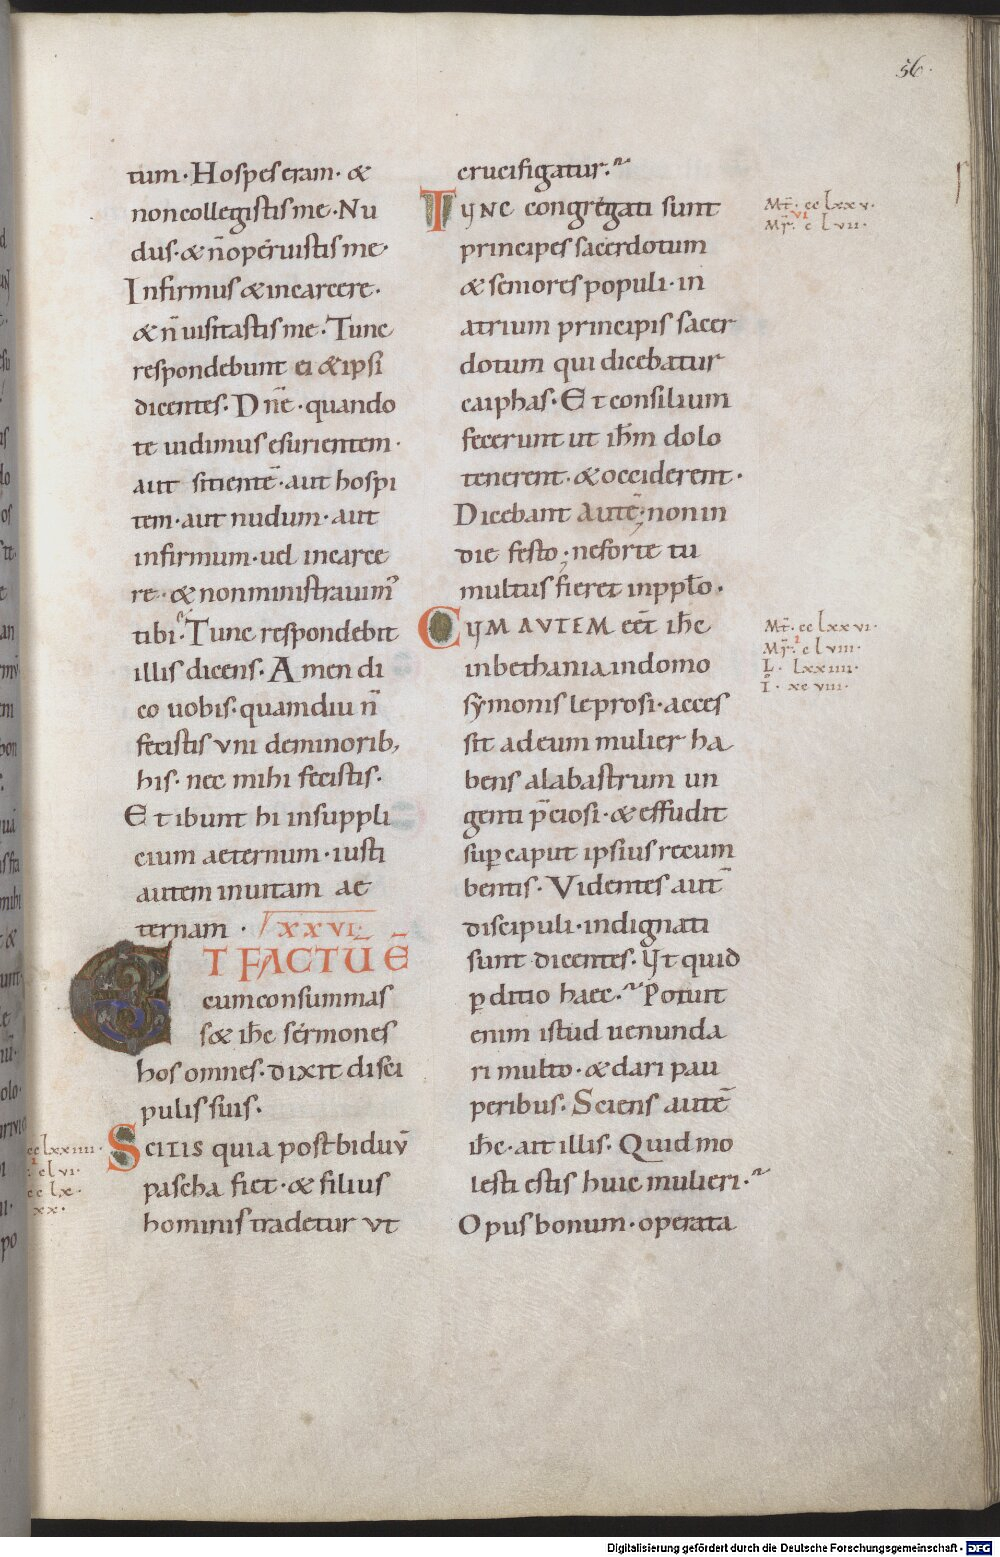 56.
tum· Hospes eram· &
non collegistis me· Nu
dus· & n̄ operuistis me·
Infirmus & in carcere·
& n̄ uisitastis me· Tunc
respondebunt ei & ipsi
dicentes· Dn̄e· quando
te uidimus esurientem·
aut sitientē· aut hospi
tem· aut nudum· aut
infirmum· uel in carce
re· & non ministrauim᾿
tibi· Tunc respondebit
illis dicens· Amen di
co uobis· quamdiu n̄
fecistis vni de minorib,
his· nec mihi fecistis·
Et ibunt hi in suppli
cium aeternum· iusti
autem in uitam ae
ternam· LXXVI
ET FACTŪ Ē
cum consummas
s& ih̄c sermones
hos omnes· dixit disci
pulis suis·
Scitis quia post biduv̄
pascha fiet· & filius
hominis tradetur vt
cc lxxiiii·
c lvi·
cc lx·
xx·
crucifigatur·
Tunc congregati sunt
principes sacerdotum
& seniores populi· in
atrium principis sacer
dotum qui dicebatur
caiphas· Et consilium
fecerunt ut ih̄m dolo
tenerent· & occiderent·
Dicebant autē· non in
die festo· ne forte tu
multus fieret in pplo·
Cum autem eēt ih̄c
in bethania in domo
symonis leprosi· acces
sit ad eum mulier ha
bens alabastrum un
genti p̄ciosi· & effudit
sup caput ipsius recum
bentis· Videntes aut̄
discipuli· indignati
sunt dicentes· Ut quid
pditio haec· Potuit
enim istud uenunda
ri multo· & dari pau
peribus· Sciens autē
ih̄c· ait illis· Quid mo
lesti estis huic mulieri·
Opus bonum· operata
Mt̄· cc lxxv·
vi
Mr̄· c lvii·
Mt̄· cc lxxvi·
Mr̄· c lviii·
L· lxxiiii·
I· xc viii·
Digitalisierung gefördert durch die Deutsche Forschungsgemeinschaft · DFG